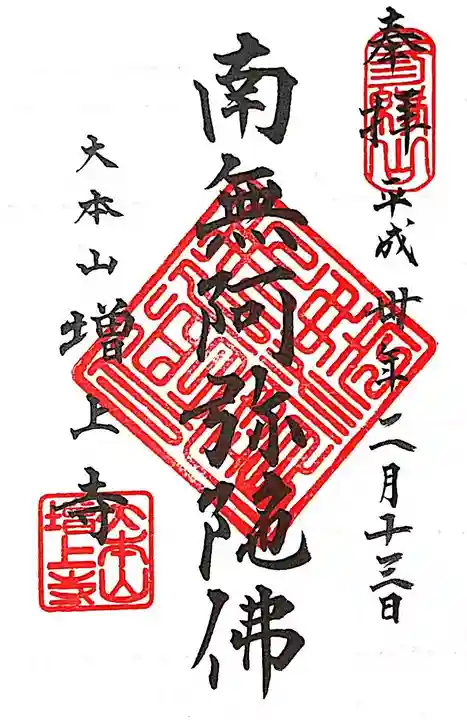 奉拝 平成卅年二月十三日
南無阿弥陀佛
大本山 増上寺
大本山
増上寺